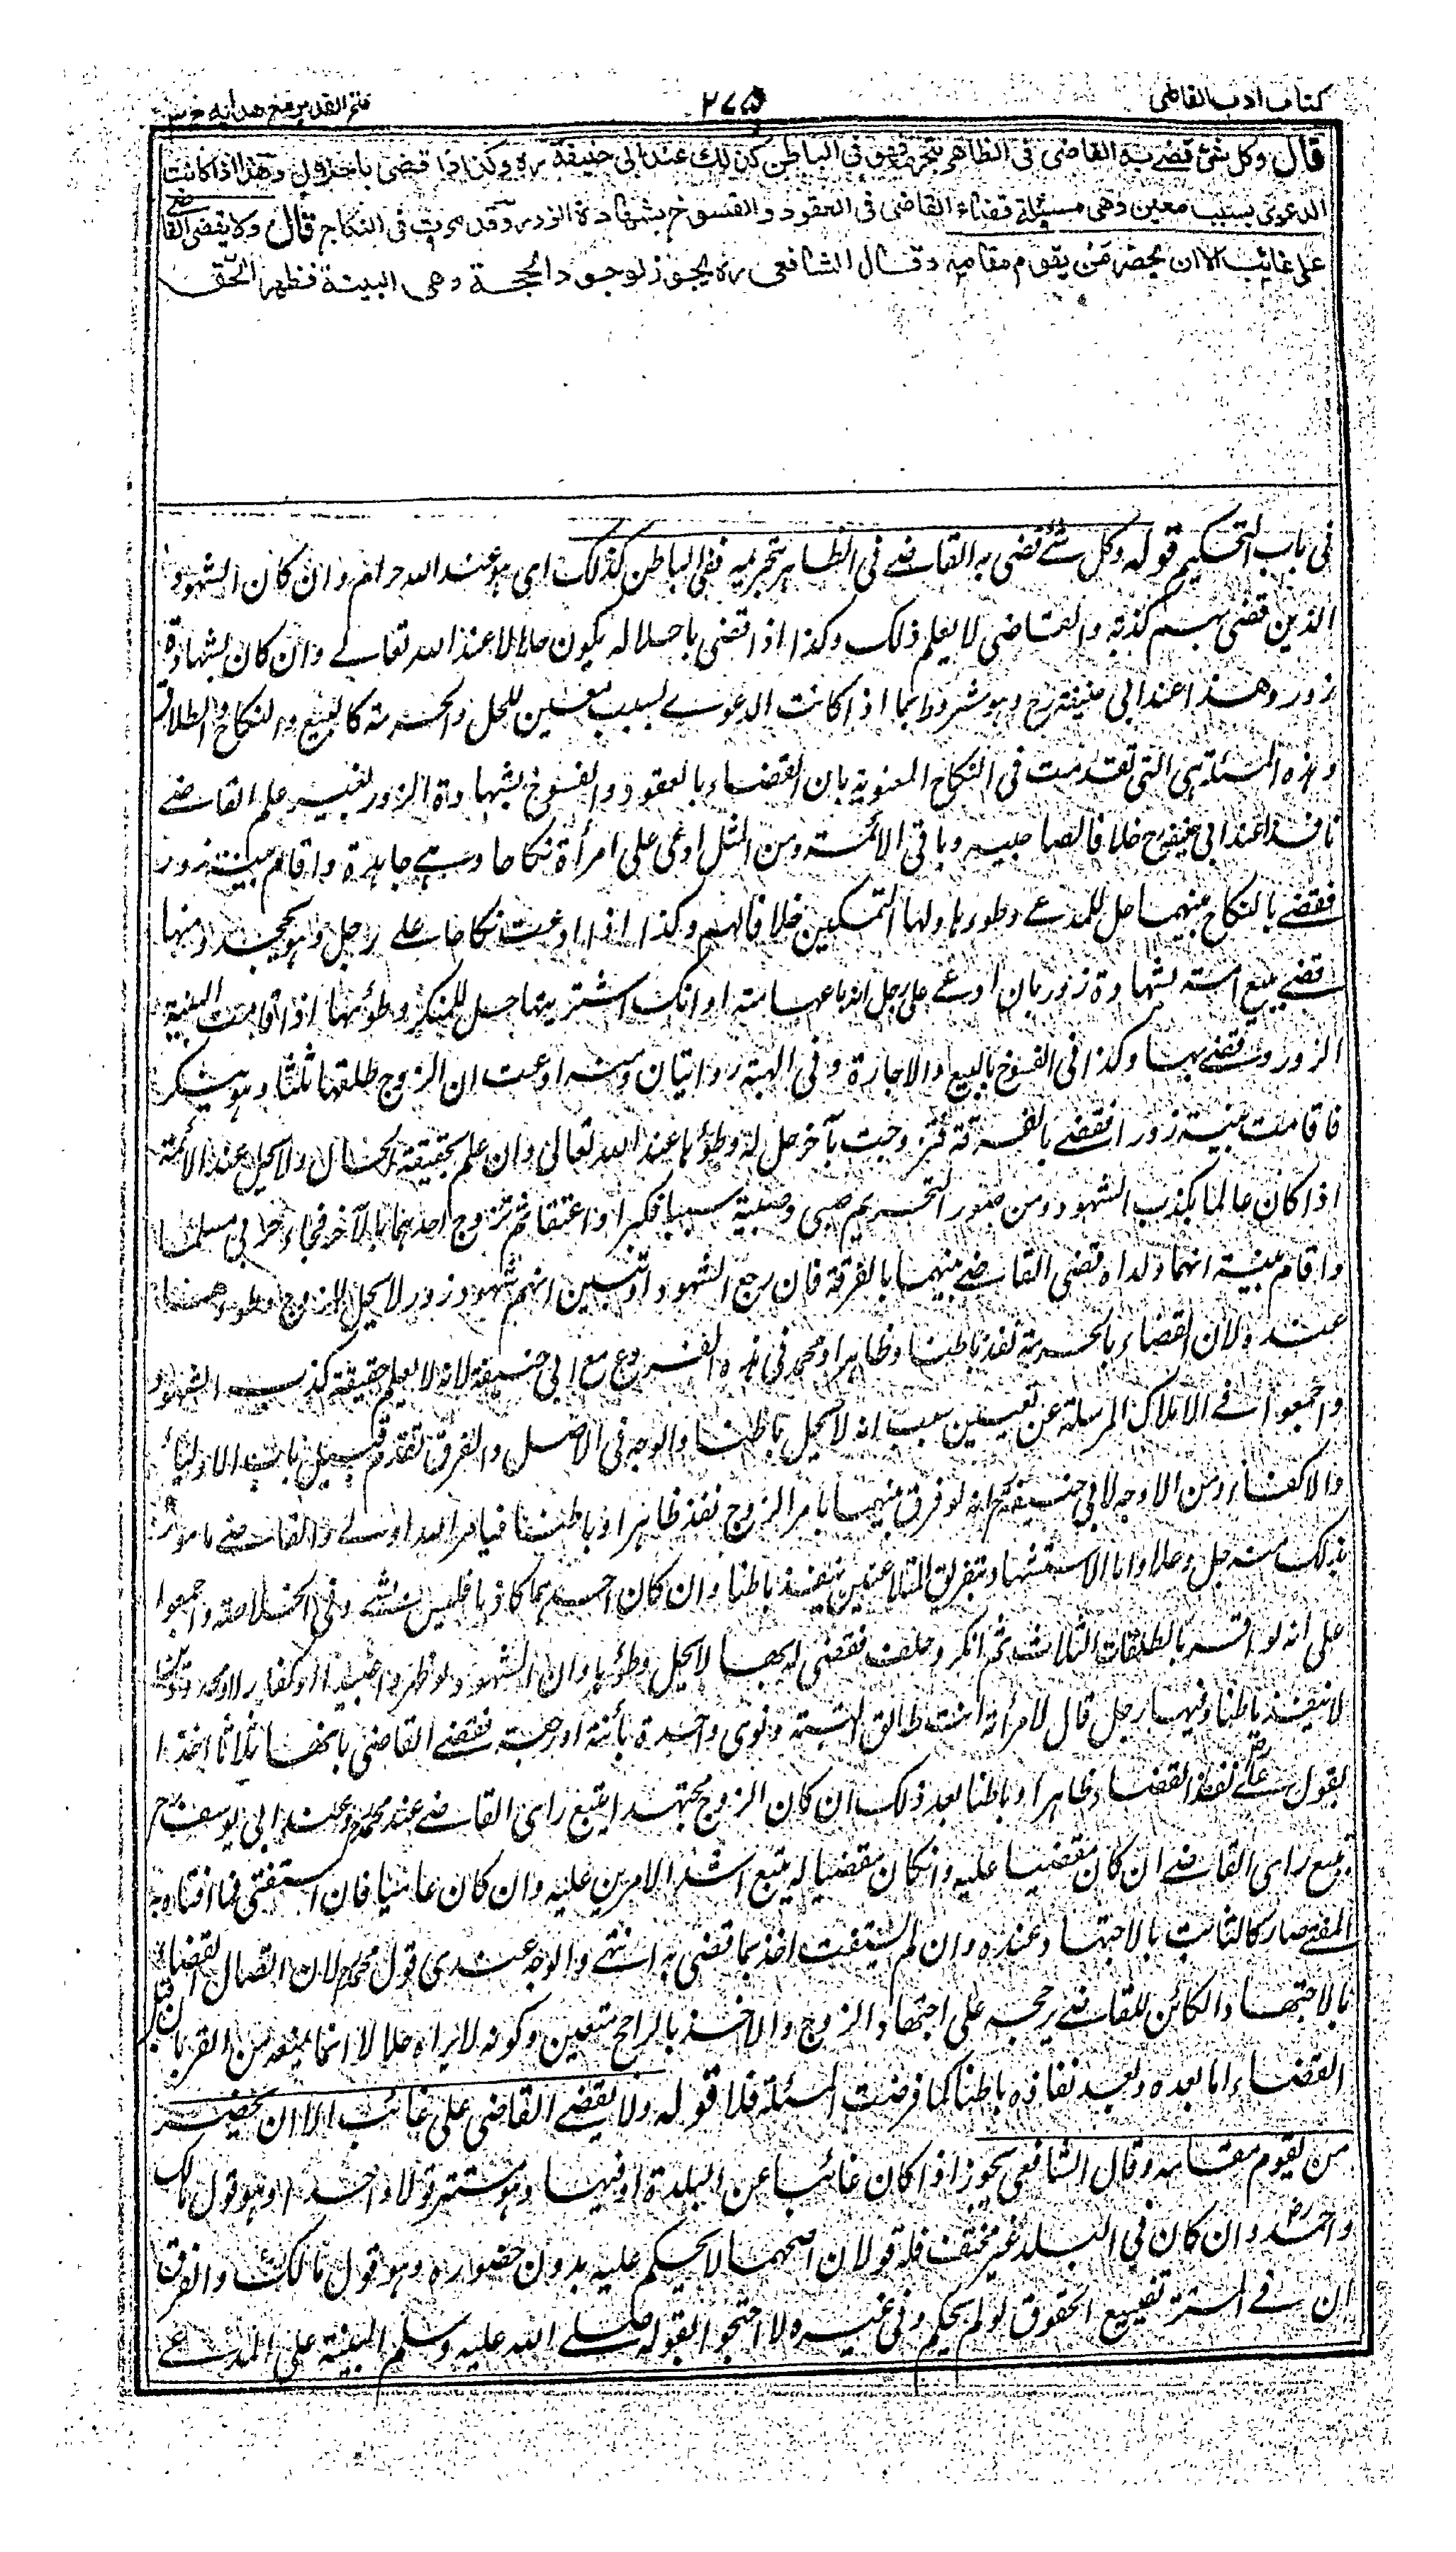 كتاب ادب القاضى
٢٧٥
فتح القدير مع هدايه ج س
قال وكل شئ قضے به القاضى فى الظاهر بتحريمه فهو فى الباطن كذلك عند ابى حنيفة ره وكذا اذا قضى باحلال وهذا اذا كانت
الدعوى بسبب معين وهى مسئلة قضاء القاضى فى العقود والفسوخ بشهادة الزور وقد مرت فى النكاح قال ولا يقضى القاضے
على غائب الا ان يحضر من يقوم مقامه وقال الشافعى ره يجوز لوجود الحجة وهى البينة فظهر الحق
فى باب التحكيم قوله وكل شئ قضى به القاضے فى الظاهر بتحريمه ففى الباطن كذلك اى هو عند الله حرام وان كان الشهود
الذين قضى بهم كذبة والقاضى لا يعلم ذلك وكذا اذا قضى باحلاله يكون حلالا عند الله تعالے وان كان بشهادة
زور وهذا عند ابى حنيفة رح وهو مشروط بما اذا كانت الدعوے بسبب معين للحل والحرمة كالبيع والنكاح والطلاق
وهذه المسئلة هى التى تقدمت فى النكاح المعنونة بان القضاء بالعقود والفسوخ بشهادة الزور بغير علم القاضے
نافذ عند ابى حنيفة رح خلافا لصاحبيه وباقى الائمة ومن المثل ادعى على امرأة نكاحا وہے جاحدة واقام بينة زور
فقضے بالنكاح بينهما حل للمدعے وطؤها ولها التمكين خلافا لهم وكذا اذا ادعت نكاحا علے رجل وهو يجحد ومنها
قضے ببيع امة بشهادة زور بان ادعے على رجل انه باعها منه او انك اشتريتها حل للمنكر وطؤها اذا اقامت البينة
الزور وقضے بها وكذا فى الفسوخ بالبيع والاجارة وفى الهبة روايتان ومنه ادعت ان الزوج طلقها ثلثا وهو ينكر
فاقامت بينة زور فقضے بالفرقة فتزوجت بآخر حل له وطؤها عند الله تعالى وان علم بحقيقة الحال ولا يحل عند الائمة
اذا كان عالما بكذب الشهود ومن صور التحريم صبى وصبية سبيا فكبرا واعتقا ثم تزوج احدهما بالآخر فجاء حربى مسلما
واقام بينة انهما ولداه قضى القاضے بينهما بالفرقة فان رجع الشهود او تبين انهم شهود زور لا يحل للزوج وطؤها
عنده لان القضاء بالحرمة نفذ باطنا وظاهرا ومحمد فى هذه الفروع مع ابى حنيفة لانه لا يعلم حقيقة كذب الشهود
واجمعوا ان فے الاملاك المرسلة عن تعيين سبب انه لا يحل باطنا والوجه فى الاصل والفرق تقدم قبيل باب الاولياء
والاكفاء ومن الاوجه لابى حنيفة رح انه لو فرق بينهما بامر الزوج نفذ ظاهرا وباطنا فبامر الله اولے والقاضے مامور
بذلك منه جل وعلا واما الاستشهاد بتفريق المتلاعنين ينفذ باطنا وان كان احدهما كاذبا فليس بشئ وفى الخلاصة واجمعوا
على انه لو اقر بالطلقات الثلاث ثم انكر وحلف فقضى له بها لا يحل وطؤها وان الشهود لو ظهروا عبيدا او كفارا
لا ينفذ باطنا وفيها رجل قال لامرأته انت طالق البتة ونوى واحدة بائنة او رجعية فقضے القاضى بانها ثلاثا اخذا
بقول علے رض نفذ القضاء ظاهرا وباطنا بعد ذلك ان كان الزوج مجتهدا يتبع راى القاضے عند محمد وعند ابى يوسف رح
يتبع راى القاضے ان كان مقضيا عليه وان كان مقضيا له يتبع اشد الامرين عليه وان كان عاميا فان استفتى فما افتاه به
المفتے صار كالثابت بالاجتهاد عنده وان لم يستفت اخذ بما قضى به انتهى والوجه عندى قول محمد لان اتصال القضاء
بالاجتهاد الكائن للقاضے يرجحه على اجتهاد الزوج والاخذ بالراجح متعين وكونه لا يراه حلالا انما يمنعه من القربان قبل
القضاء اما بعده وبعد نفاذه باطنا كما فرضت المسئلة فلا قوله ولا يقضے القاضى على غائب الا ان يحضر
من يقوم مقامه وقال الشافعى يجوز اذا كان غائبا عن البلدة او فيها وهو مستتر قولا واحدا وهو قول مالك
واحمد وان كان فى البلد غير مختف فله قولان اصحهما لا يحكم عليه بدون حضوره وهو قول مالك والفرق
ان فے المستتر تضييع الحقوق لو لم يحكم وفى غيره لا احتجوا بقوله صلے الله عليه وسلم البينة على المدعے